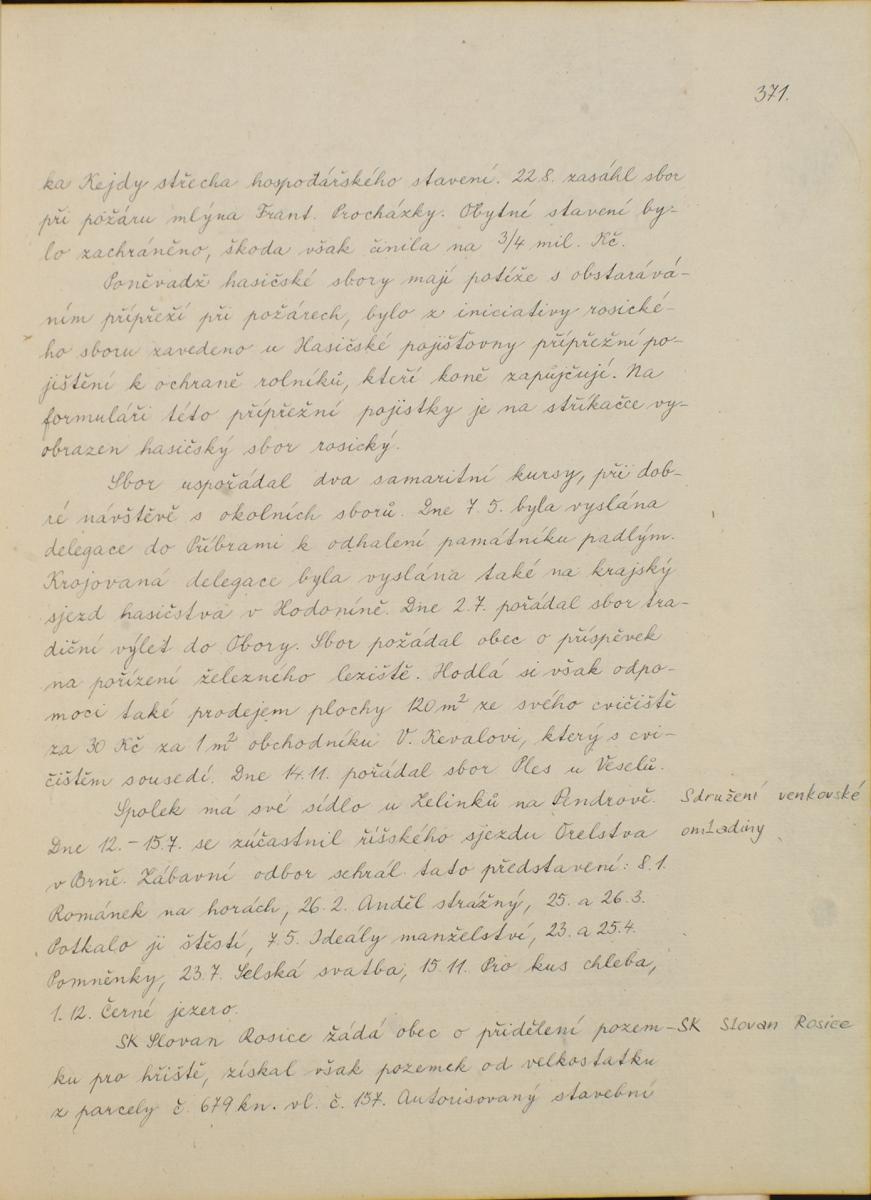 371.
ka Kejdy střecha hospodářského stavení. 22 8. zasáhl sbor
při požáru mlýna Frant. Procházky. Obytné stavení by-
lo zachráněno, škoda však činila na 3/4 mil. Kč.
Poněvadž hasičské sbory mají potíže s obstarává-
ním přípřeží při požárech, bylo z iniciativy rosické-
ho sboru zavedeno u Hasičské pojišťovny přípřežní po-
jištění k ochraně rolníků, kteří koně zapůjčují. Na
formuláři této přípřežní pojistky je na stříkačce vy-
obrazen hasičský sbor rosický.
Sbor uspořádal dva samaritní kursy, při dob-
ré návštěvě s okolních sborů. Dne 7. 5. byla vyslána
delegace do Příbrami k odhalení památníku padlým.
Krojovaná delegace byla vyslána také na krajský
sjezd hasičstva v Hodoníně. Dne 2.7. pořádal sbor tra-
diční výlet do Obory. Sbor požádal obec o příspěvek
na pořízení železného leziště. Hodlá si však odpo-
moci také prodejem plochy 120 m² ze svého cvičiště
za 30 Kč za 1 m² obchodníku V. Kevalovi, který s cvi-
čištěm sousedí. Dne 14.11. pořádal sbor Ples u Veselů.
Spolek má své sídlo u Zelinků na Pendrově. Sdružení venkovské
Dne 12. - 15.7. se zúčastnil říšského sjezdu Orelstva omladiny
v Brně. Zábavní odbor sehrál tato představení: 8.1.
Románek na horách, 26.2. Anděl strážný, 25. a 26.3.
Potkalo ji štěstí, 7.5. Ideály manželství, 23. a 25.4.
Pomněnky, 23.7. Selská svatba, 15.11. Pro kus chleba,
1.12. Černé jezero.
SK Slovan Rosice žádá obec o přidělení pozem- SK Slovan Rosice
ku pro hřiště, získal však pozemek od velkostatku
z parcely č. 679 kn. vl. č. 157. Autorisovaný stavební